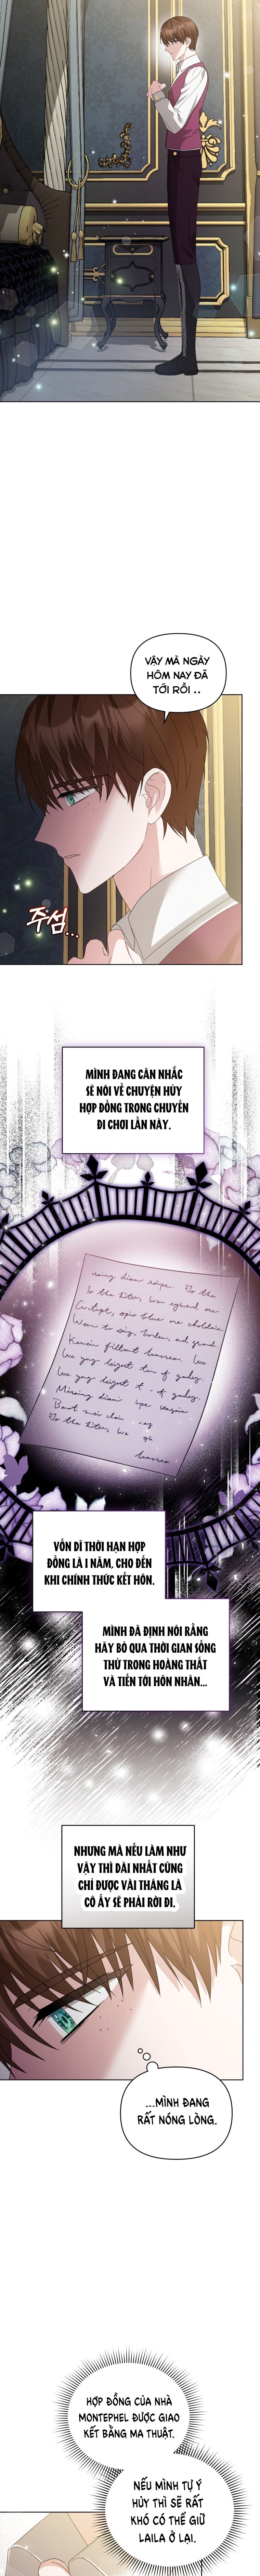 VẬY MÀ NGÀY
HÔM NAY ĐÃ
TỚI RỒI ..
주섬...
MÌNH ĐANG CÂN NHẮC
SẼ NÓI VỀ CHUYỆN HỦY
HỢP ĐỒNG TRONG CHUYẾN
ĐI CHƠI LẦN NÀY.
VỐN DĨ THỜI HẠN HỢP
ĐỒNG LÀ 1 NĂM, CHO ĐẾN
KHI CHÍNH THỨC KẾT HÔN.
MÌNH ĐÃ ĐỊNH NÓI RẰNG
HÃY BỎ QUA THỜI GIAN SỐNG
THỬ TRONG HOÀNG THẤT
VÀ TIẾN TỚI HÔN NHÂN...
NHƯNG MÀ NẾU LÀM NHƯ
VẬY THÌ DÀI NHẤT CŨNG
CHỈ ĐƯỢC VÀI THÁNG LÀ
CÔ ẤY SẼ PHẢI RỜI ĐI.
...MÌNH ĐANG
RẤT NÓNG LÒNG.
HỢP ĐỒNG CỦA NHÀ
MONTEPHEL ĐƯỢC GIAO
KẾT BẰNG MA THUẬT.
NẾU MÌNH TỰ Ý
HỦY THÌ SẼ RẤT
KHÓ CÓ THỂ GIỮ
LAILA Ở LẠI.